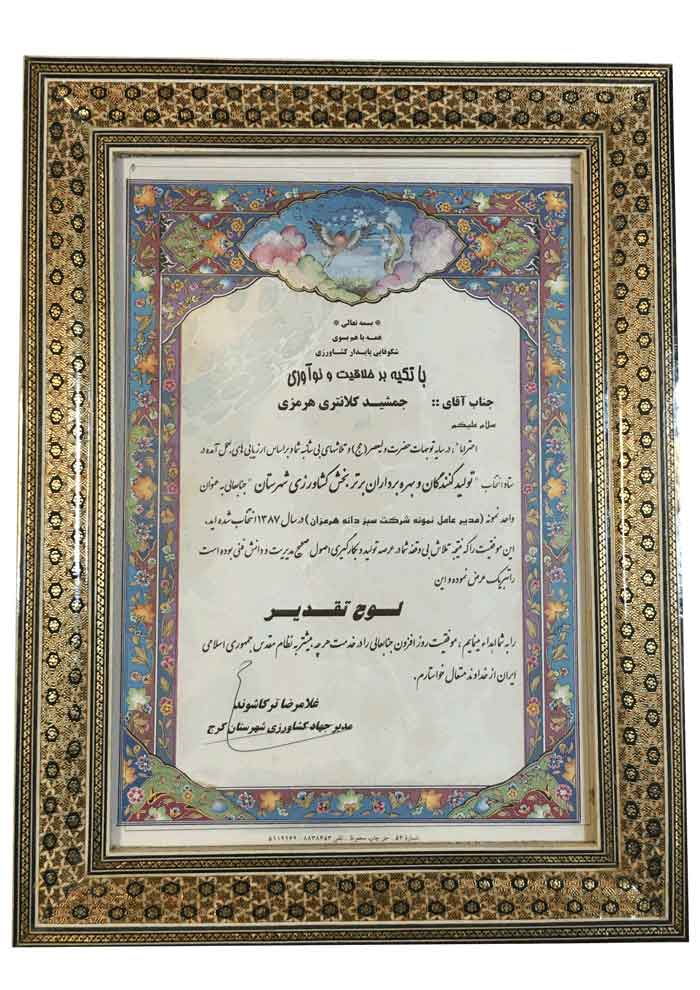 * بسمه تعالی *
همه با هم بسوی
شکوفایی پایدار کشاورزی
با تکیه بر خلاقیت و نوآوری
جناب آقای :: جمشید کلانتری هرمزی
سلام علیکم
احتراماً، در سایه توجهات حضرت ولیعصر (عج) و تلاشهای بی شائبه شما و بر اساس ارزیابی های بعمل آمده در
ستاد انتخاب "تولید کنندگان و بهره برداران برتر بخش کشاورزی شهرستان" جنابعالی به عنوان
واحد نمونه (مدیر عامل نمونه شرکت سبز دانه هرمزان) در سال ۱۳۸۷ انتخاب شده اید.
این موفقیت را که نتیجه تلاش بی وقفه شما در عرصه تولید و بکارگیری اصول صحیح مدیریت و دانش فنی بوده است
را تبریک عرض نموده و این
لوح تقدیر
را به شما اهداء مینماییم، موفقیت روز افزون جنابعالی را در خدمت هر چه بیشتر به نظام مقدس جمهوری اسلامی
ایران از خداوند متعال خواستارم.
غلامرضا ترکاشوند
مدیر جهاد کشاورزی شهرستان کرج
شماره ۵۴ - حق چاپ محفوظ - تلفن